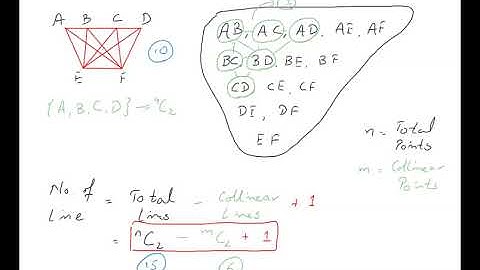 A B C D
E F
10
{A,B,C,D} → ⁿC₂
AB, AC, AD, AE, AF
BC, BD, BE, BF
CD CE, CF
DE, DF
EF
n = Total Points
m = Collinear Points
No of Line = Total Lines - Collinear Lines + 1
= ⁿC₂ - ᵐC₂ + 1
15 6